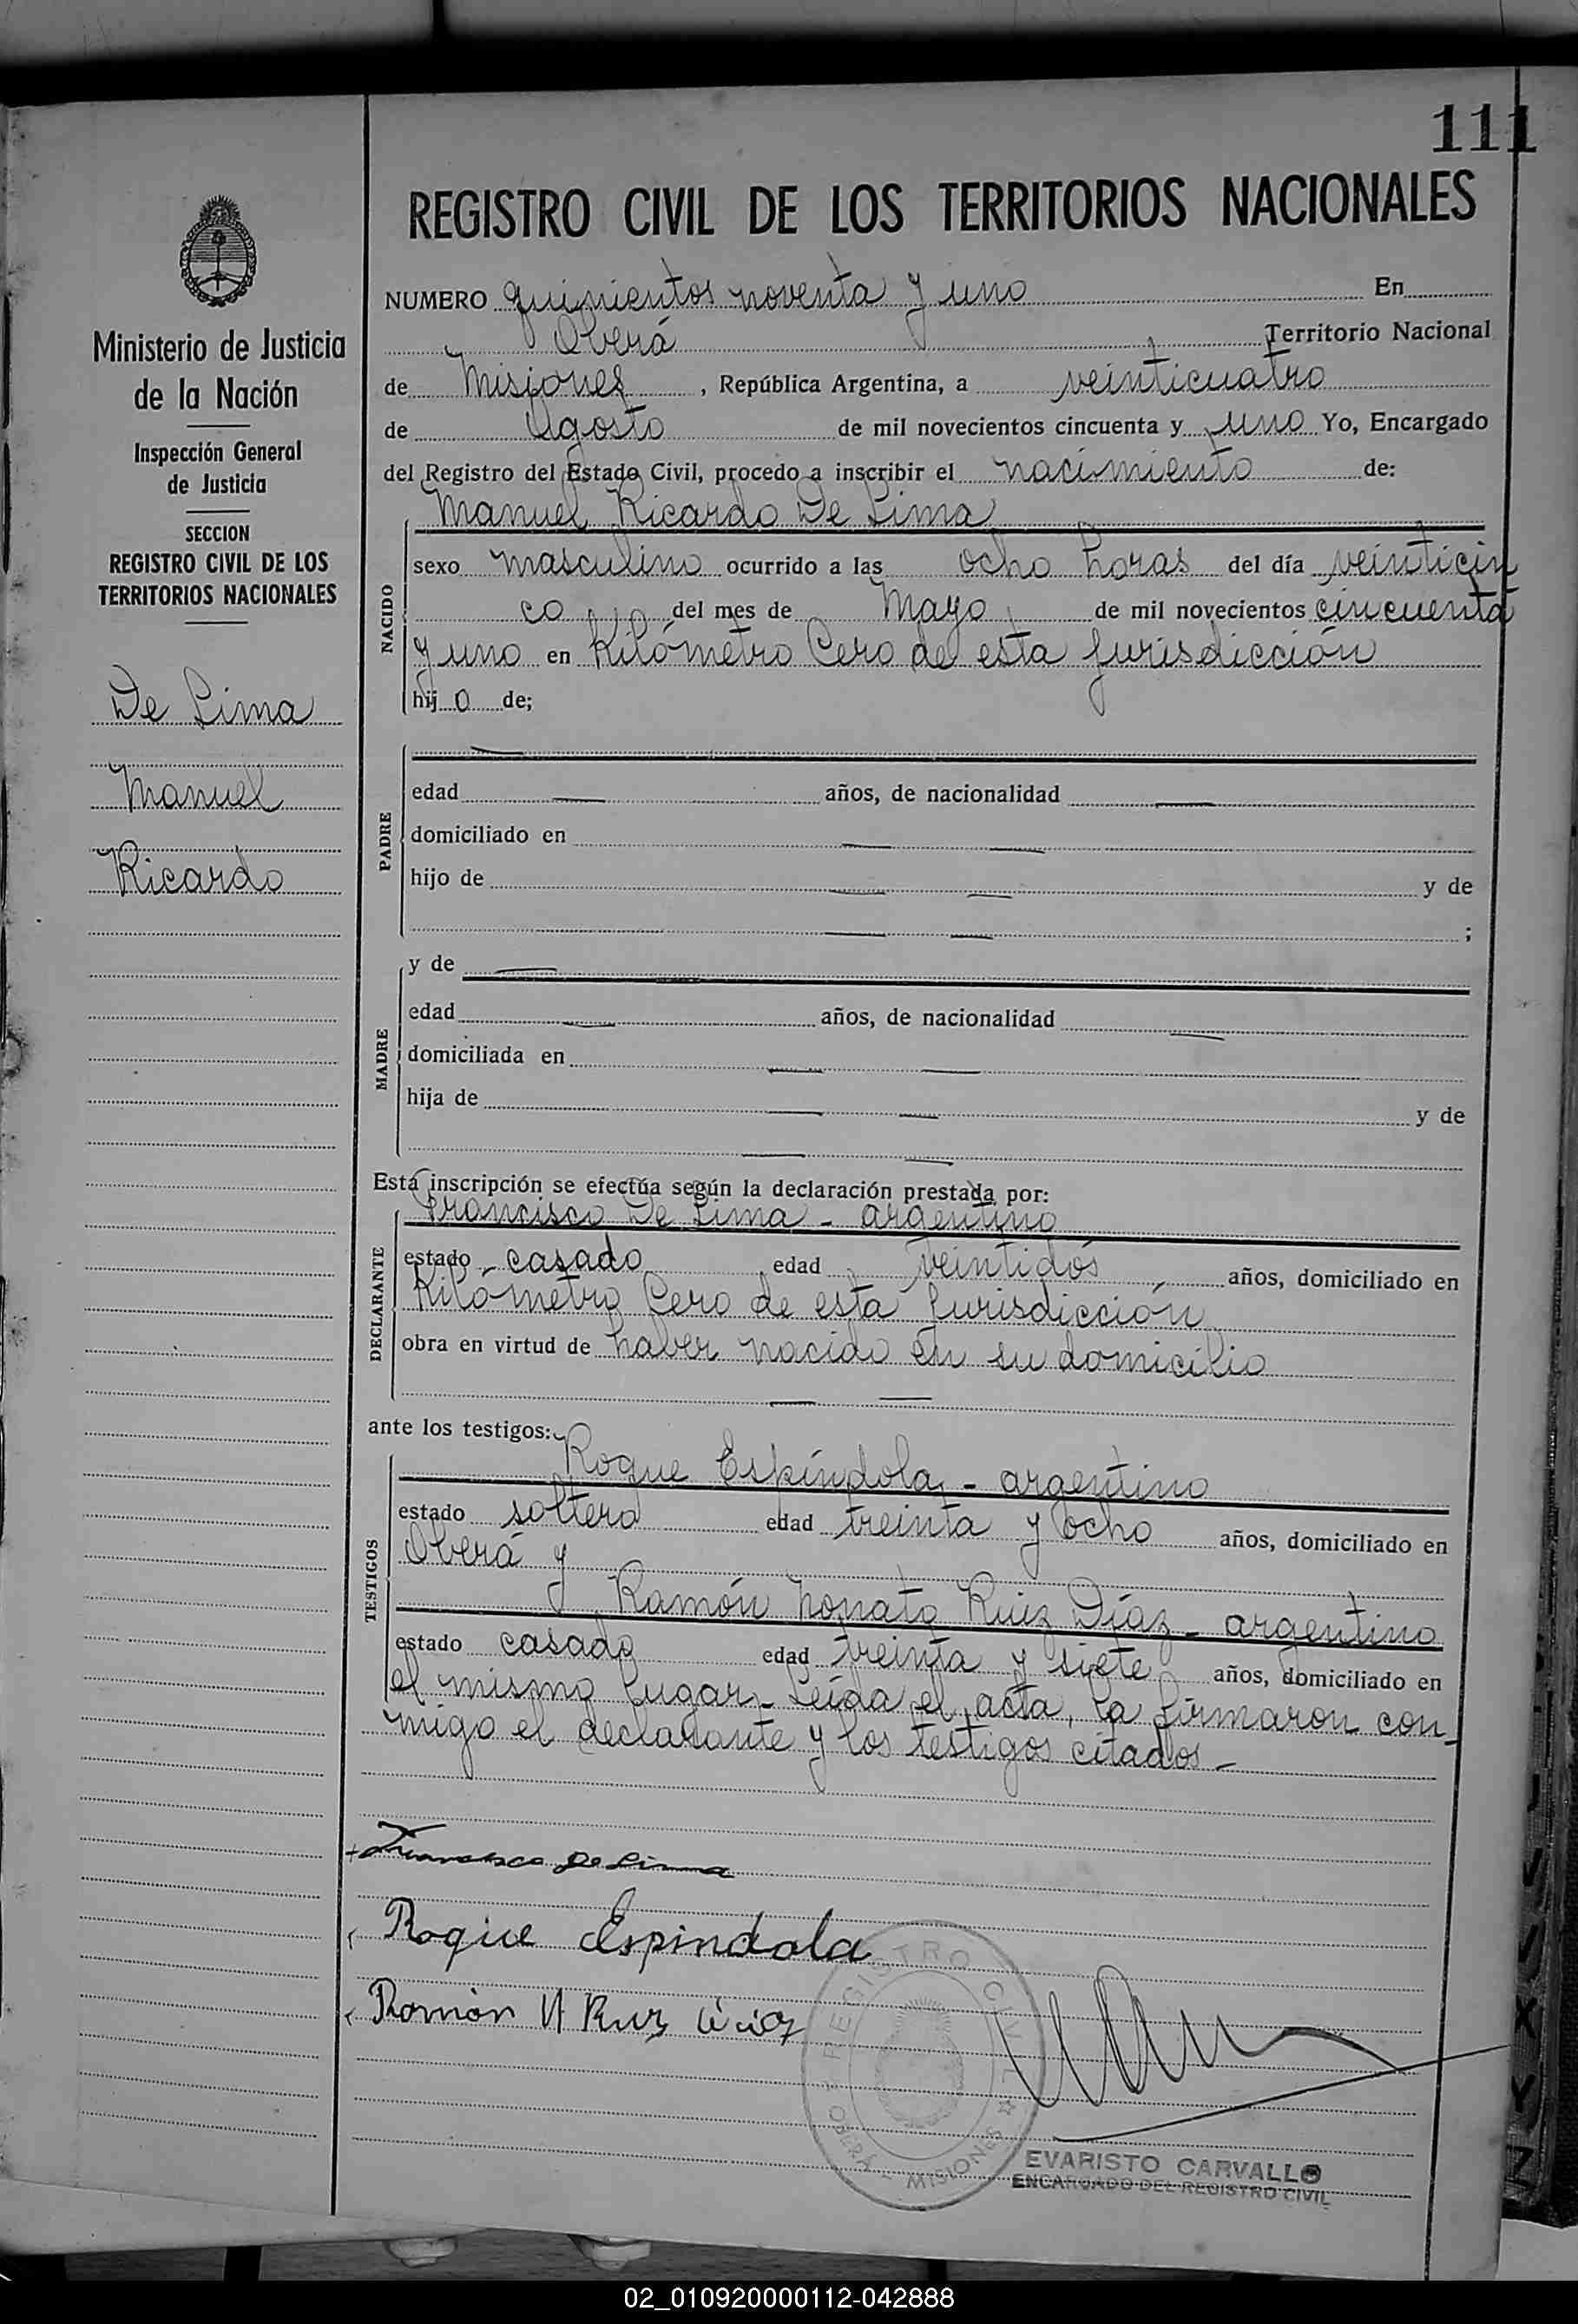 111
REGISTRO CIVIL DE LOS TERRITORIOS NACIONALES
Ministerio de Justicia
de la Nación
Inspección General
de Justicia
SECCION
REGISTRO CIVIL DE LOS
TERRITORIOS NACIONALES
De Lima
Manuel
Ricardo
NUMERO quinientos noventa y uno En
Oberá Territorio Nacional
de Misiones, República Argentina, a veinticuatro
de Agosto de mil novecientos cincuenta y uno Yo, Encargado
del Registro del Estado Civil, procedo a inscribir el nacimiento de:
Manuel Ricardo De Lima
NACIDO
sexo masculino ocurrido a las ocho horas del día veinticin
co del mes de Mayo de mil novecientos cincuenta
y uno en Kilómetro Cero de esta Jurisdicción
hij o de;
PADRE
edad años, de nacionalidad
domiciliado en
hijo de y de
;
MADRE
y de
edad años, de nacionalidad
domiciliada en
hija de y de
Esta inscripción se efectúa según la declaración prestada por:
DECLARANTE
Francisco De Lima - argentino
estado casado edad veintidós años, domiciliado en
Kilómetro Cero de esta Jurisdicción
obra en virtud de haber nacido en su domicilio
ante los testigos:
TESTIGOS
Roque Espíndola - argentino
estado soltero edad treinta y ocho años, domiciliado en
Oberá y
Ramón Nonato Ruiz Díaz - argentino
estado casado edad treinta y siete años, domiciliado en
el mismo lugar - Leída el acta, la firmaron con-
migo el declarante y los testigos citados -
Francisco De Lima
Roque Espindola
Ramón N Ruiz Diaz
REGISTRO CIVIL
OBERÁ - MISIONES
EVARISTO CARVALLO
ENCARGADO DEL REGISTRO CIVIL
X
Y
Z
02_010920000112-042888